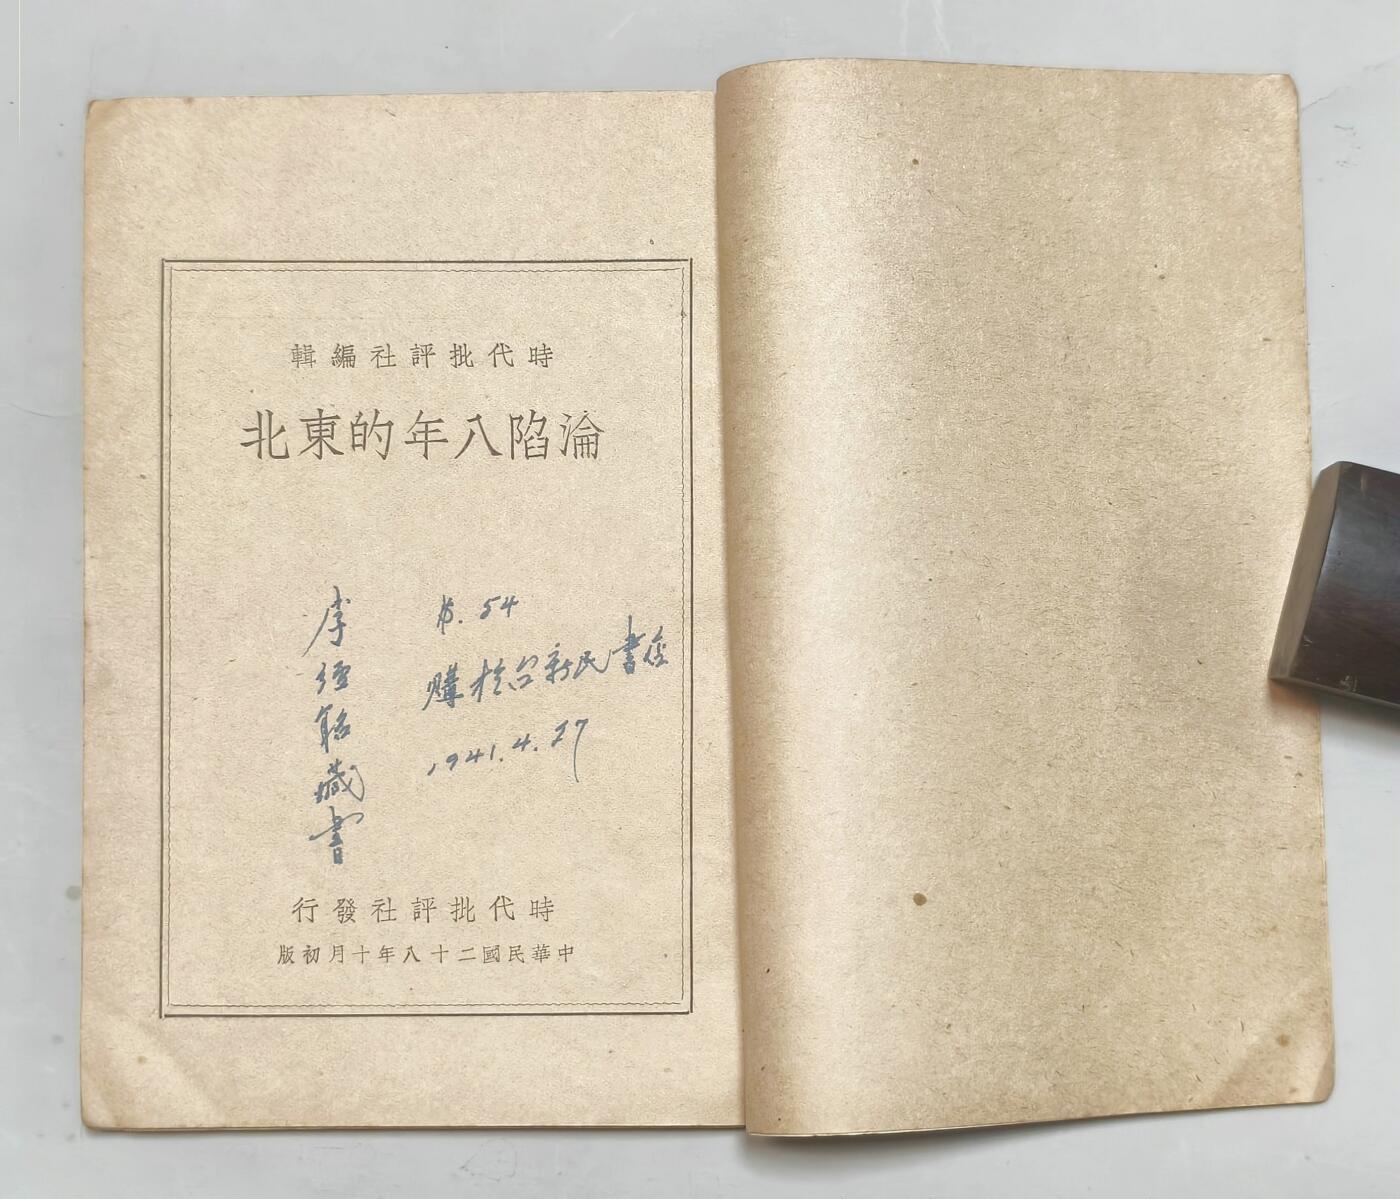 時代批評社編輯
淪陷八年的東北
.54
購於台新民書店
1941.4.27
李經銘藏書
時代批評社發行
中華民國二十八年十月初版